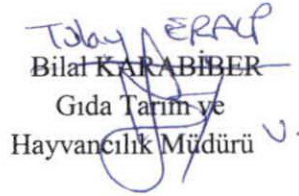 Tülay ERALP
Bilal KARABİBER
Gıda Tarım ve
Hayvancılık Müdürü V.